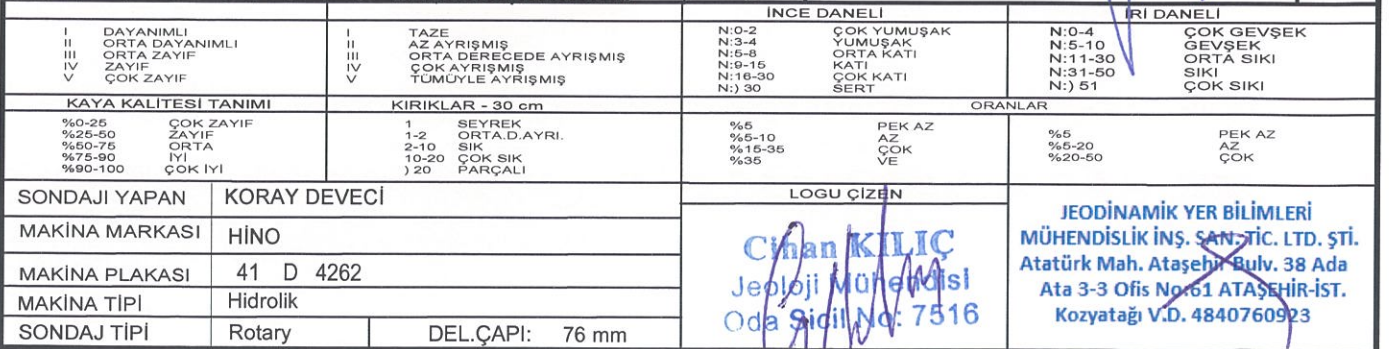 İNCE DANELİ
İRİ DANELİ
I DAYANIMLI
II ORTA DAYANIMLI
III ORTA ZAYIF
IV ZAYIF
V ÇOK ZAYIF
I TAZE
II AZ AYRIŞMIŞ
III ORTA DERECEDE AYRIŞMIŞ
IV ÇOK AYRIŞMIŞ
V TÜMÜYLE AYRIŞMIŞ
N:0-2 ÇOK YUMUŞAK
N:3-4 YUMUŞAK
N:5-8 ORTA KATI
N:9-15 KATI
N:16-30 ÇOK KATI
N:) 30 SERT
N:0-4 ÇOK GEVŞEK
N:5-10 GEVŞEK
N:11-30 ORTA SIKI
N:31-50 SIKI
N:) 51 ÇOK SIKI
KAYA KALİTESİ TANIMI
KIRIKLAR - 30 cm
ORANLAR
%0-25 ÇOK ZAYIF
%25-50 ZAYIF
%50-75 ORTA
%75-90 İYİ
%90-100 ÇOK İYİ
1 SEYREK
1-2 ORTA.D.AYRI.
2-10 SIK
10-20 ÇOK SIK
) 20 PARÇALI
%5 PEK AZ
%5-10 AZ
%15-35 ÇOK
%35 VE
%5 PEK AZ
%5-20 AZ
%20-50 ÇOK
SONDAJI YAPAN KORAY DEVECİ
MAKİNA MARKASI HİNO
MAKİNA PLAKASI 41 D 4262
MAKİNA TİPİ Hidrolik
SONDAJ TİPİ Rotary DEL.ÇAPI: 76 mm
LOGU ÇİZEN
Cihan KILIÇ
Jeoloji Mühendisi
Oda Sicil No: 7516
JEODİNAMİK YER BİLİMLERİ
MÜHENDİSLİK İNŞ. SAN. TİC. LTD. ŞTİ.
Atatürk Mah. Ataşehir Bulv. 38 Ada
Ata 3-3 Ofis No:61 ATAŞEHİR-İST.
Kozyatağı V.D. 4840760923